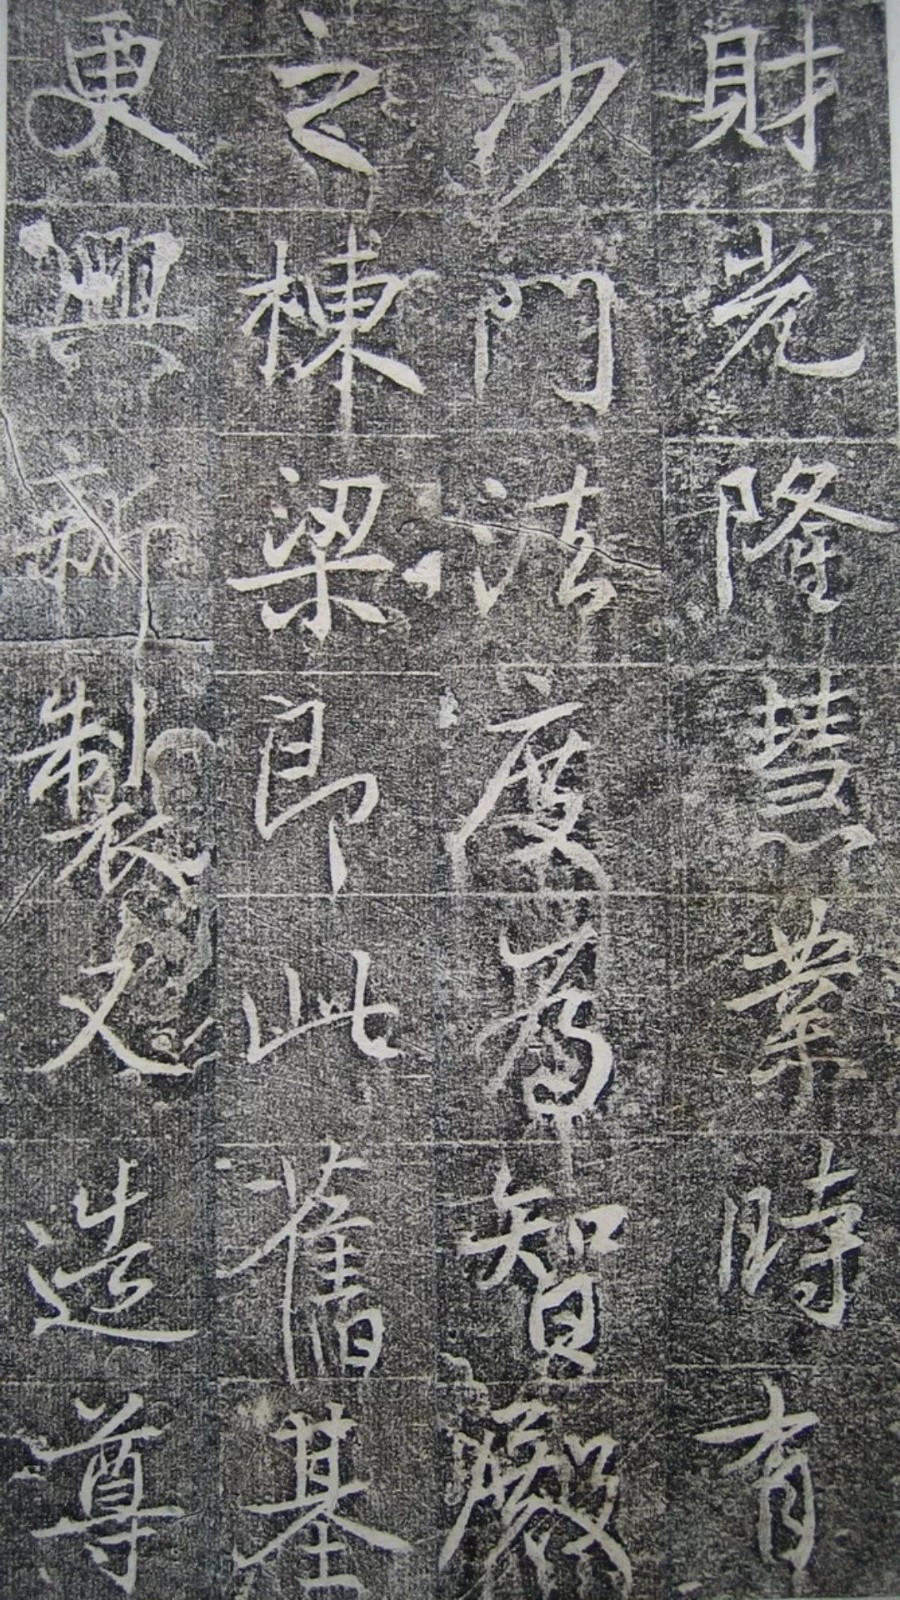 財光隆慧業時有
沙門法度為智殿
之棟梁即此舊基
更興新製又造尊